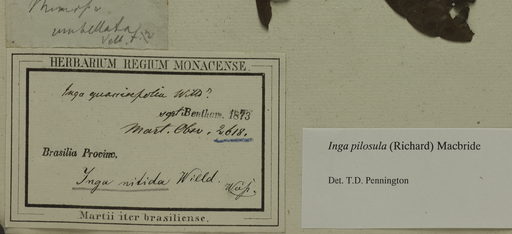 Mimosa
umbellata
Vell.
HERBARIUM REGIUM MONACENSE.
Inga quassiaefolia Willd?
sept. Bentham. 1873
Mart. Obs. 2618.
Brasilia Provinc.
Inga nitida Willd.
Martii iter brasiliense.
Inga pilosula (Richard) Macbride
Det. T.D. Pennington